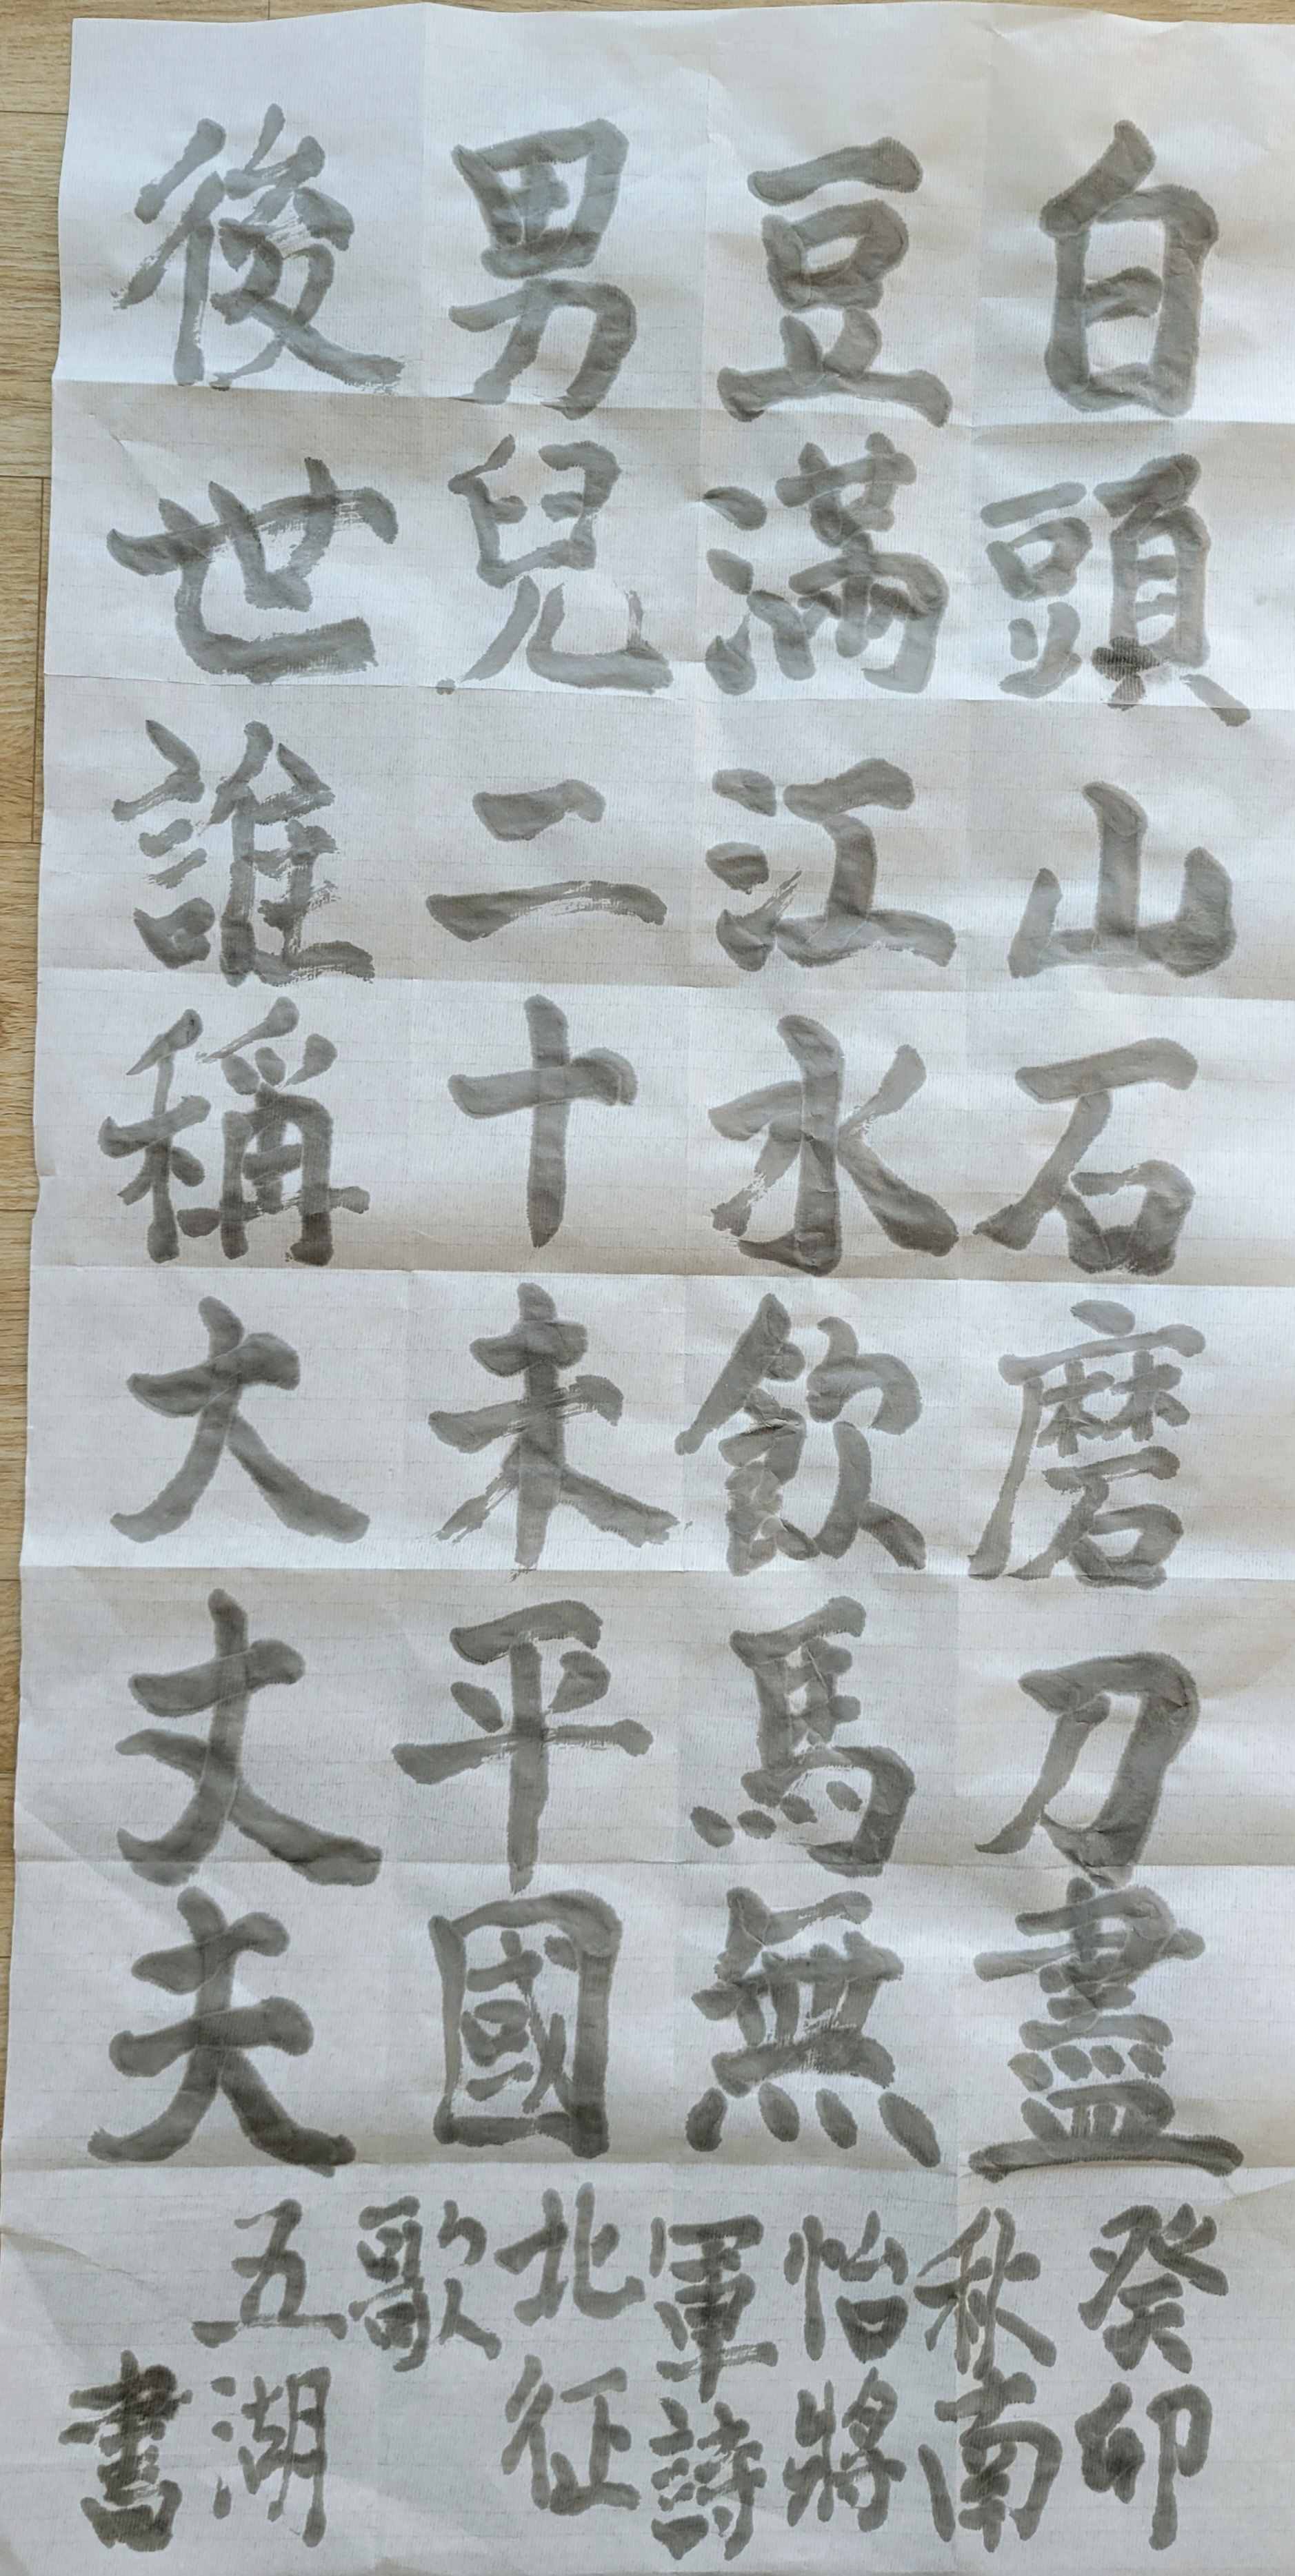 白頭山石磨刀盡
豆滿江水飮馬無
男兒二十未平國
後世誰稱大丈夫
癸卯
秋南
怡將
軍詩
北征
歌
五湖
書